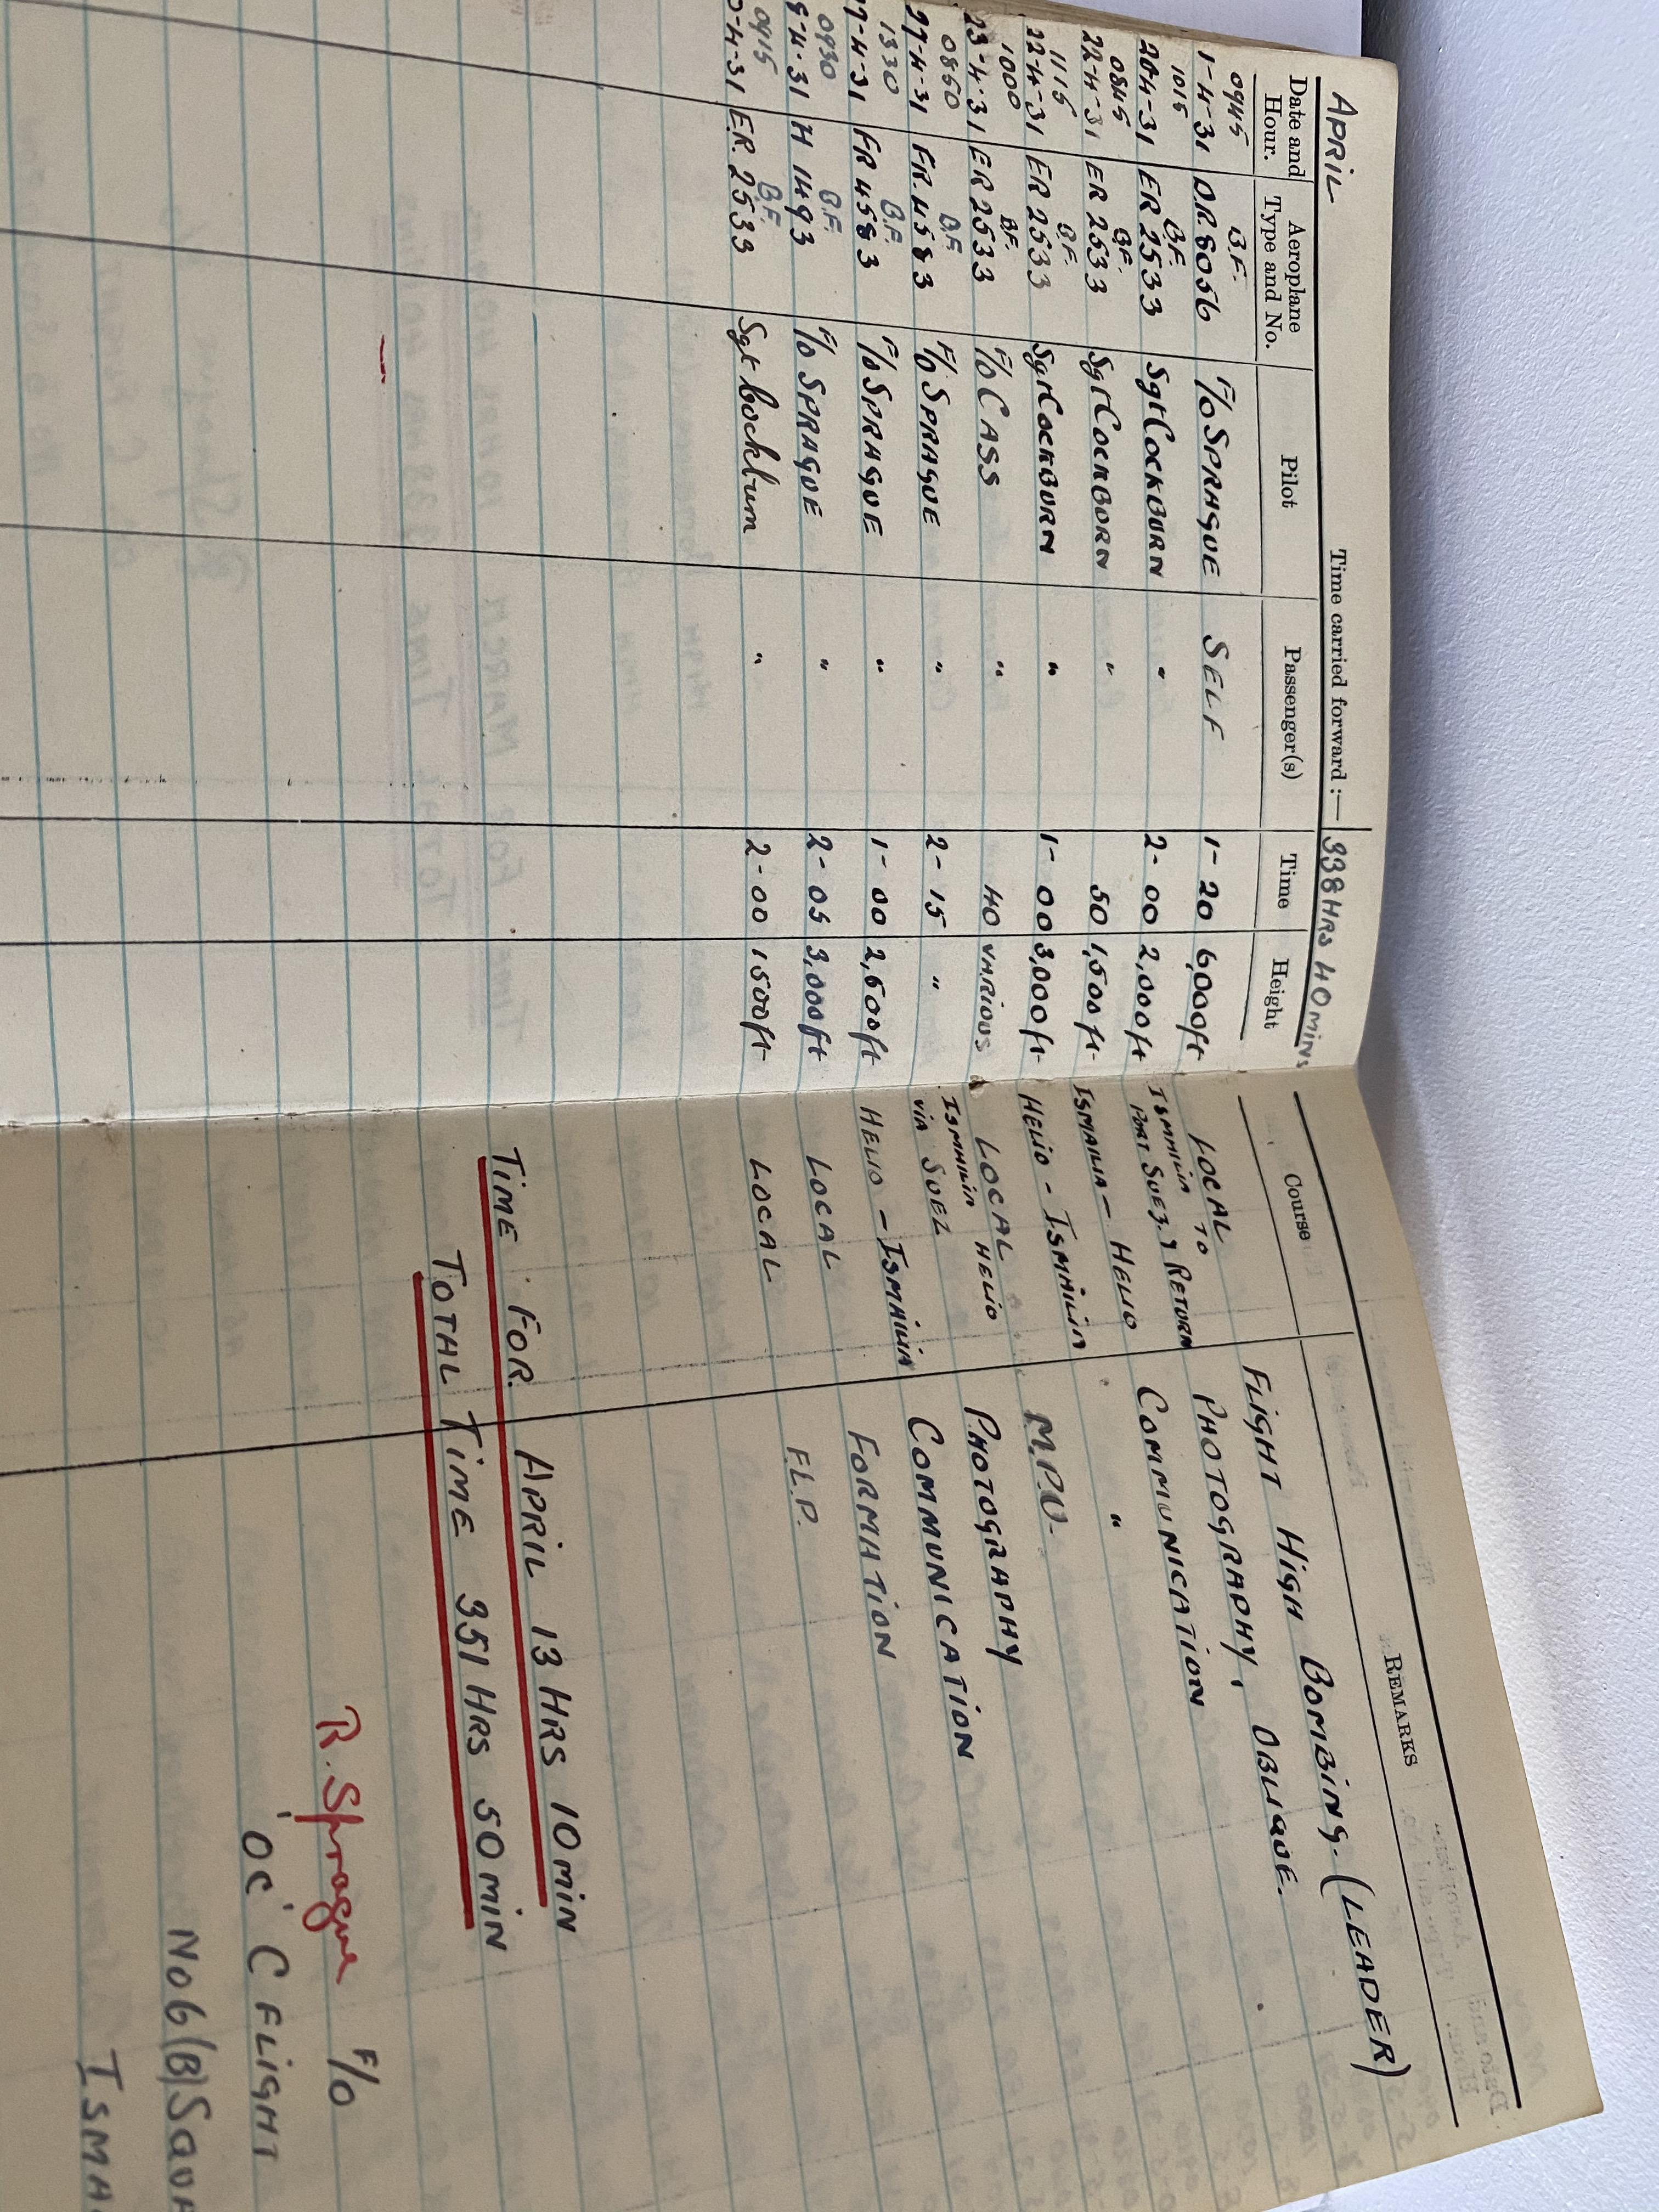 APRIL Time carried forward :— 338 HRS 40 MINS
Date and Hour. Aeroplane Type and No. Pilot Passenger(s) Time Height Course REMARKS
0945 B.F.
1-4-31 DR 8056 F/O SPRAGUE SELF 1-20 6,000ft LOCAL FLIGHT HIGH BOMBING. (LEADER)
1015 B.F. ISMAILIA TO
20-4-31 ER 2533 Sgt COCKBURN " 2-00 2,000ft PORT SUEZ & RETURN PHOTOGRAPHY, OBLIQUE.
0845 B.F.
22-4-31 ER 2533 Sgt COCKBORN " 50 1,500ft ISMAILIA — HELIO COMMUNICATION
1115 B.F.
22-4-31 ER 2533 Sgt COCKBURN " 1-00 3,000ft HELIO - ISMAILIA "
1000 B.F.
23-4-31 ER 2533 F/O CASS " 40 VARIOUS LOCAL M.P.U.
0850 B.F. ISMAILIA HELIO
27-4-31 FR.4583 F/O SPRAGUE " 2-15 " VIA SUEZ PHOTOGRAPHY
1330 B.F.
27-4-31 FR 4583 F/O SPRAGUE " 1-00 2,500ft HELIO - ISMAILIA COMMUNICATION
0930 B.F.
9-4-31 H 1493 F/O SPRAGUE " 2-05 3,000ft LOCAL FORMATION
0915 B.F.
0-4-31 ER 2533 Sgt Cockburn " 2-00 1500ft LOCAL F.L.P.
TIME FOR APRIL 13 HRS 10 MIN
TOTAL TIME 351 HRS 50 MIN
R. Sprague F/O
OC 'C' FLIGHT
No 6 (B) SQUA
ISMA